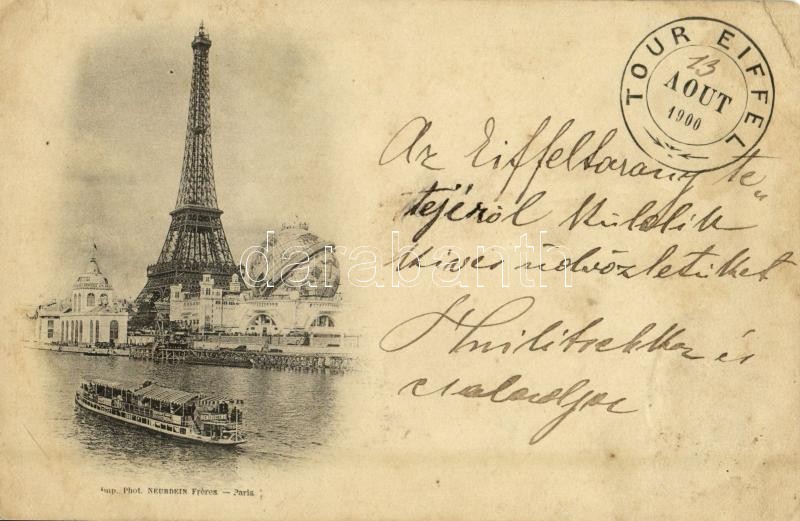 TOUR EIFFEL
13
AOUT
1900
Az Eiffeltorony te„
tejéről küldik
szíves üdvözletüket
és
családja
darabanth
Imp. Phot. NEURDEIN Frères. — Paris